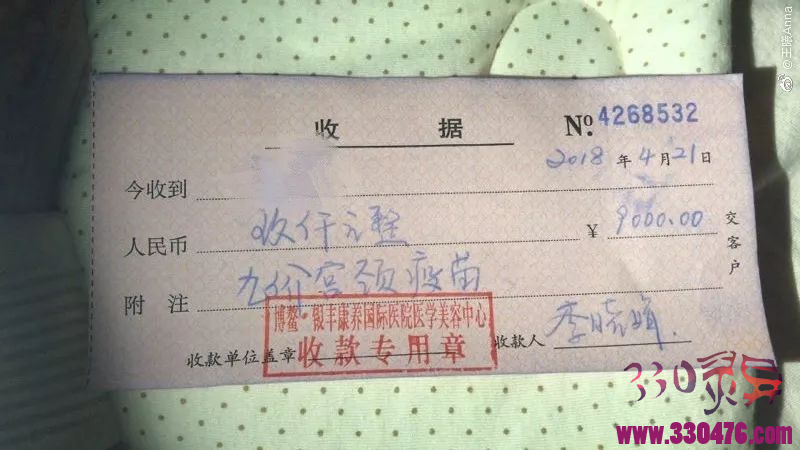 @王晓Anna
收 据 No. 4268532
2018 年 4 月 21 日
今收到
人民币 玖仟元整 ¥ 9000.00
附 注 九价宫颈疫苗
交客户
博鳌·银丰康养国际医院医学美容中心
收款专用章
收款单位盖章 收款人 李晓娟
330灵异
www.330476.com